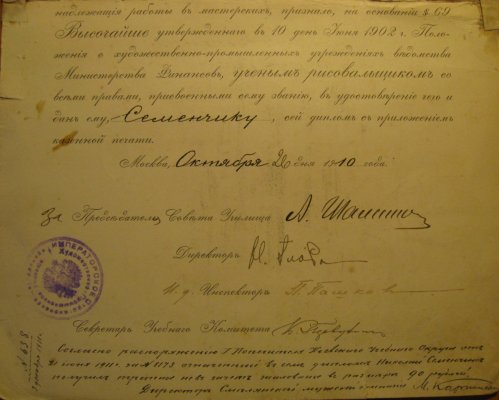 надлежащія работы въ мастерскихъ, признало, на основаніи § 69
Высочайше утвержденнаго въ 10 день Іюня 1902 г. Поло-
женія о художественно-промышленныхъ учрежденіяхъ вѣдомства
Министерства Финансовъ, ученымъ рисовальщикомъ со
всѣми правами, присвоенными сему званію, въ удостовѣреніе чего и
данъ ему, Семенчику, сей дипломъ съ приложеніемъ
казенной печати.
Москва, Октября 26 дня 1910 года.
За Предсѣдателя Совѣта Училища
Директоръ
И. д. Инспектора
Секретарь Учебнаго Комитета
ИМПЕРАТОРСКОЕ
Согласно распоряженію Г. Попечителя Учебнаго Округа отъ
1911 г. за № 1173 означенный въ семъ дипломѣ Николай Семенчикъ
получилъ въ размѣрѣ 90 рублей.
Директоръ
№ 638